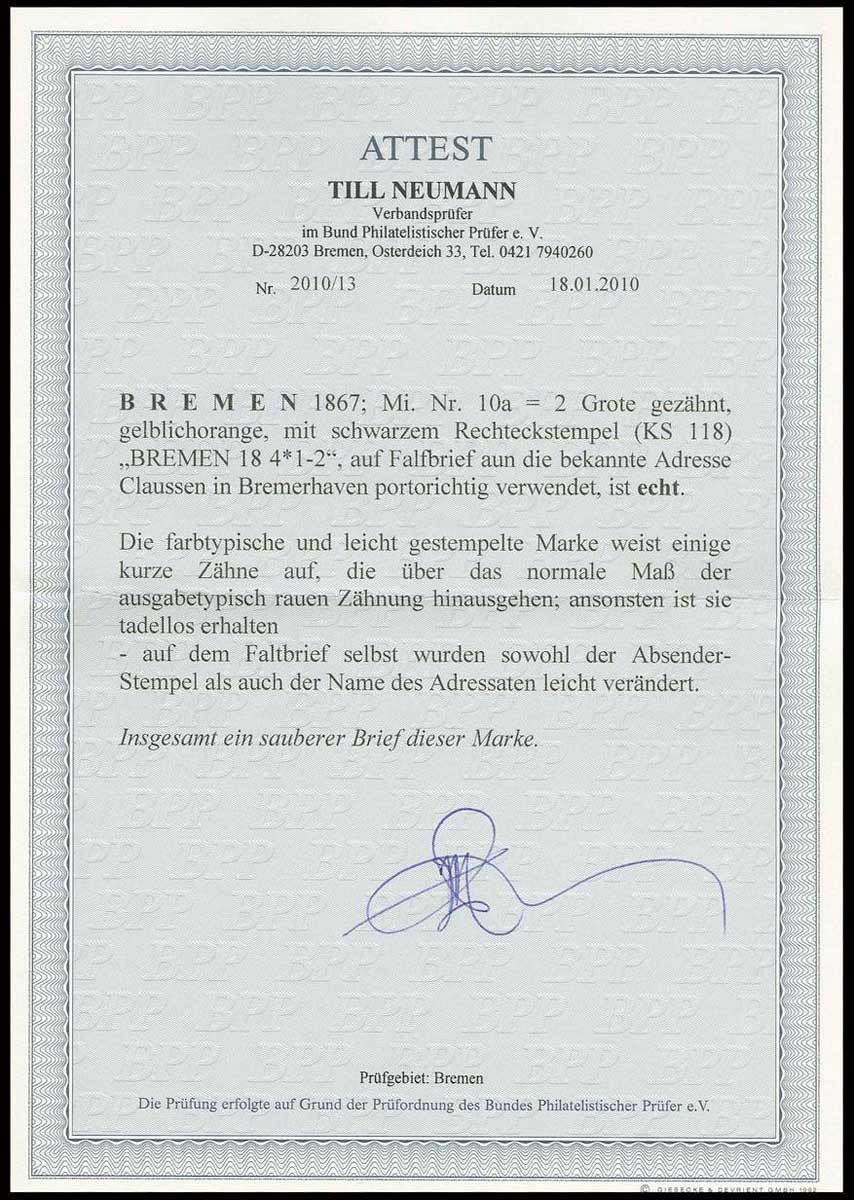 ATTEST
TILL NEUMANN
Verbandsprüfer
im Bund Philatelistischer Prüfer e. V.
D-28203 Bremen, Osterdeich 33, Tel. 0421 7940260
Nr. 2010/13 Datum 18.01.2010
B R E M E N 1867; Mi. Nr. 10a = 2 Grote gezähnt,
gelblichorange, mit schwarzem Rechteckstempel (KS 118)
„BREMEN 18 4*1-2“, auf Falfbrief aun die bekannte Adresse
Claussen in Bremerhaven portorichtig verwendet, ist echt.
Die farbtypische und leicht gestempelte Marke weist einige
kurze Zähne auf, die über das normale Maß der
ausgabetypisch rauen Zähnung hinausgehen; ansonsten ist sie
tadellos erhalten
- auf dem Faltbrief selbst wurden sowohl der Absender-
Stempel als auch der Name des Adressaten leicht verändert.
Insgesamt ein sauberer Brief dieser Marke.
Prüfgebiet: Bremen
Die Prüfung erfolgte auf Grund der Prüfordnung des Bundes Philatelistischer Prüfer e.V.
© GIESECKE & DEVRIENT GMBH 1992